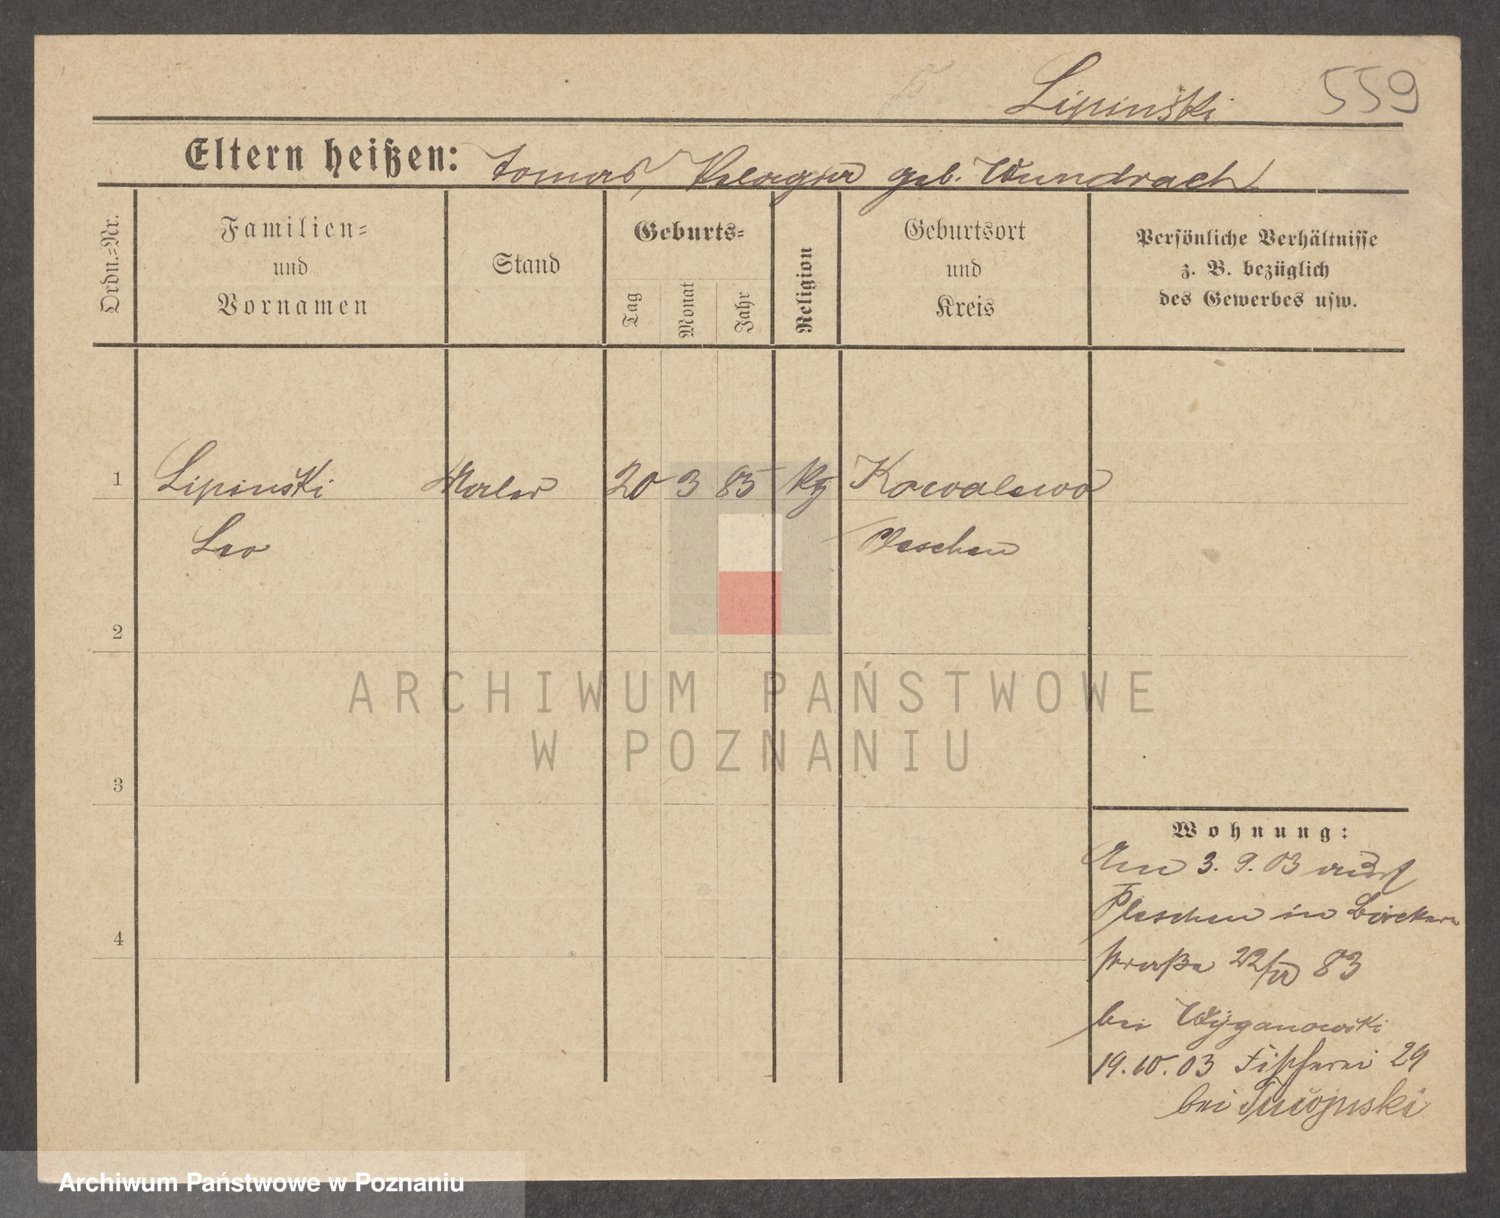 Lipinski 559
Eltern heißen: Tomas, Pelagia geb. Wundrach
Ordn.=Nr.
Familien=
und
Vornamen
Stand
Geburts=
Tag
Monat
Jahr
Religion
Geburtsort
und
Kreis
Persönliche Verhältnisse
z. B. bezüglich
des Gewerbes usw.
1 Lipinski Maler 20 3 85 kg Kowalewo
Leo Pleschen
2
3
4
ARCHIWUM PAŃSTWOWE
W POZNANIU
Wohnung:
Am 3. 9. 03 aus
Pleschen in Bäcker
straße 22/ 83
bei Wyganowski
19.10.03 Fischerei 29
bei
Archiwum Państwowe w Poznaniu